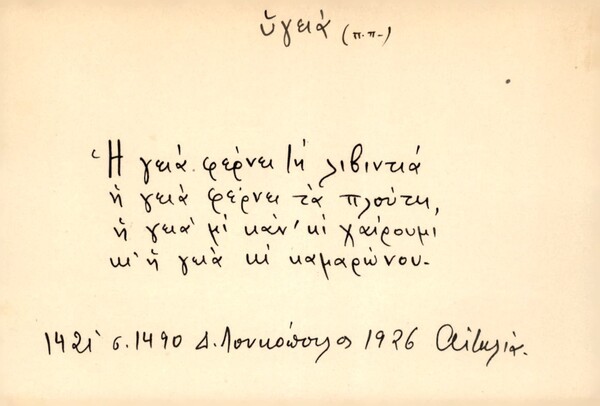 ὑγειά (π.π.)
Ἡ γειὰ φέρνει τὴ λιβιντιά
ἡ γειὰ φέρνει τὰ πλούτη,
ἡ γειὰ μὶ κάν' κὶ χαίρουμι
κι' ἡ γειὰ κὶ καμαρώνου.
1421 σ. 1490 Δ. Λουκόπουλος 1926 Αἰτωλία.